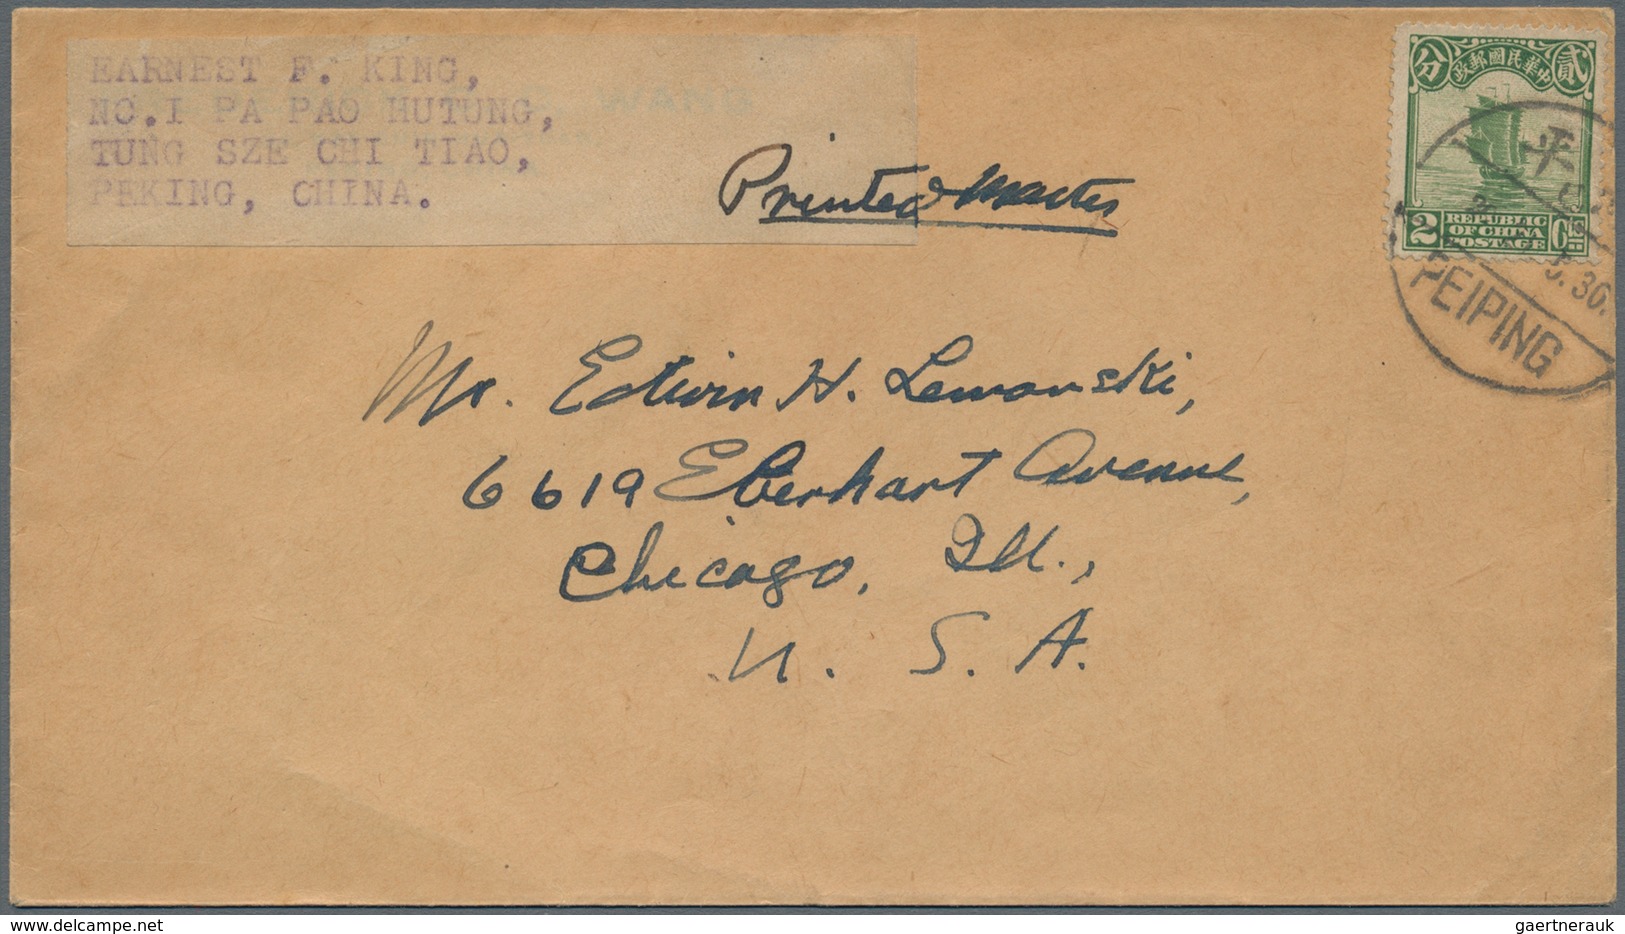 EARNEST F. KING,
NO.I PA PAO HUTUNG,
TUNG SZE CHI TIAO,
PEKING, CHINA.
WANG
Printed Matter
分 中華民國郵政 貳
2 REPUBLIC OF CHINA POSTAGE
平
PEIPING
Mr. Edwin H. Lewanski,
6619 Eberhart Avenue,
Chicago, Ill.,
U. S. A.
gaertnerauk @ delcampe.net